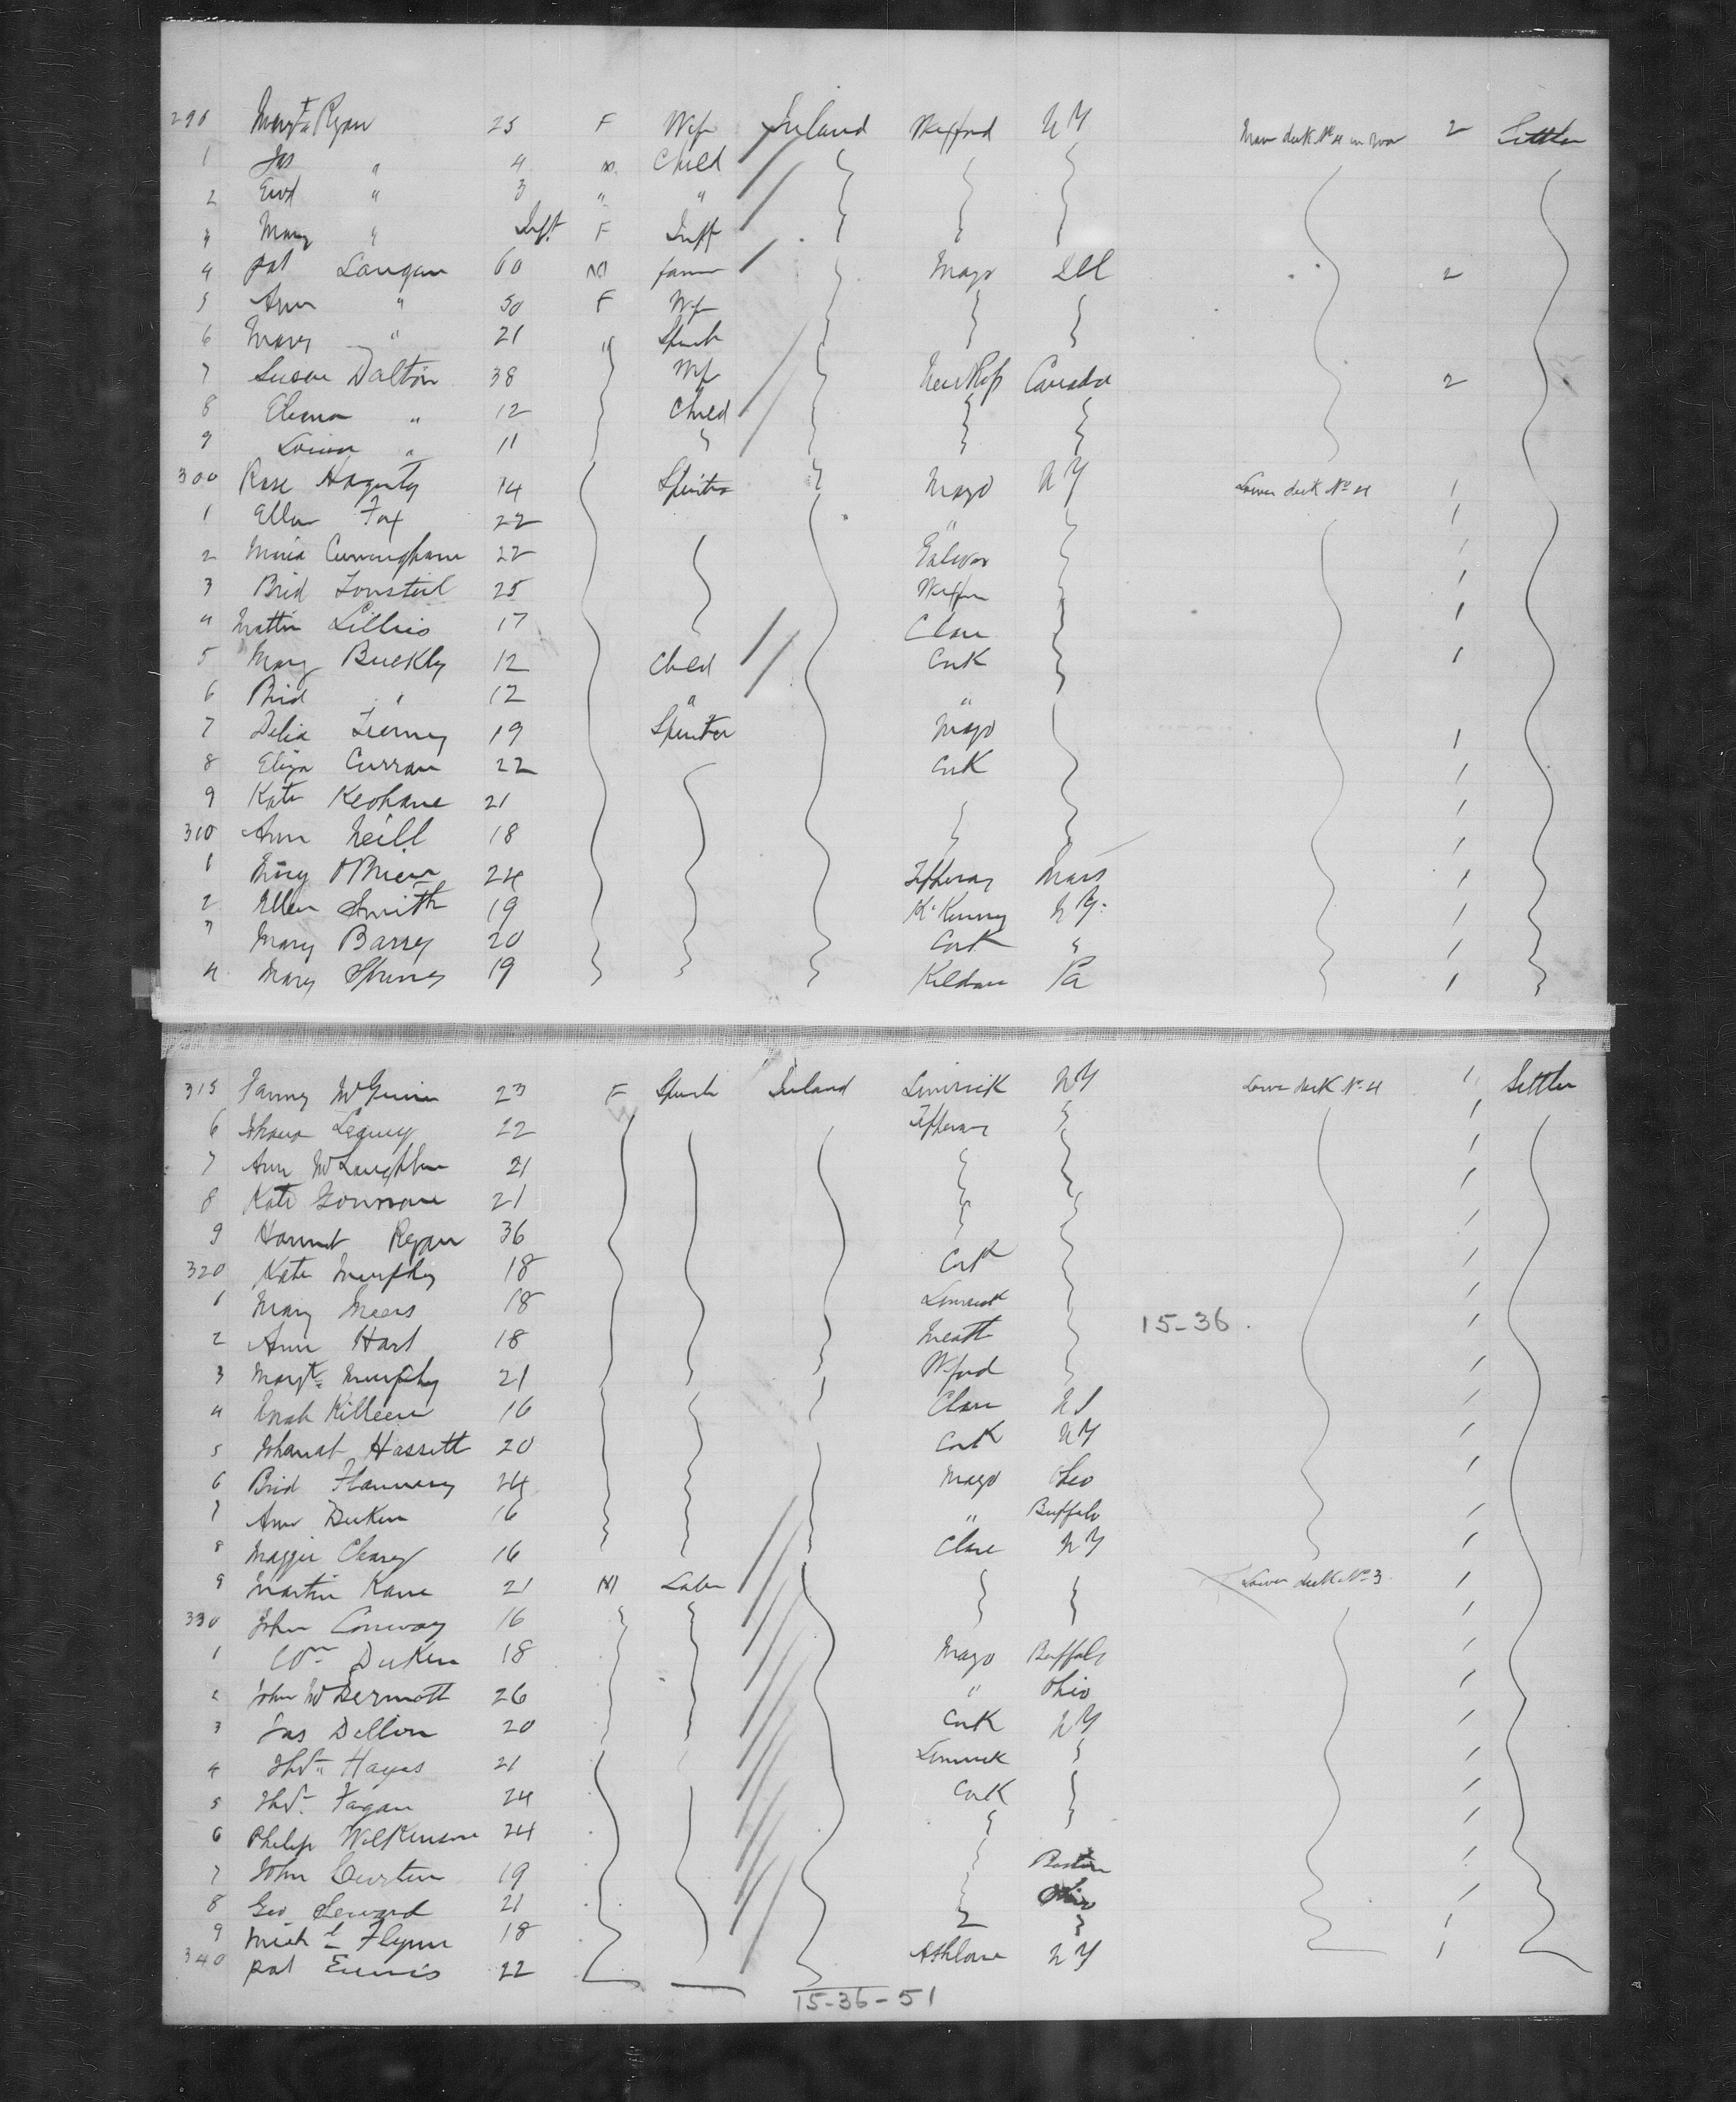 290 Margt Ryan 25 F Wife Ireland Wexford NY Main deck No 4 in rear 2 Settler
1 Jas " 4 m. Child
2 Ewd " 3 " "
3 Mary " Inft. F Inft
4 Pat Langan 60 M farmer Mayo Ill 2
5 Ann " 50 F Wife
6 Mary " 21 " Spinster
7 Susan Dalton 38 Wife New Ross Canada 2
8 " 12 Child
9 " 11
300 Rose Hagerty 14 Spinster Mayo NY Lower deck No 4 1
1 Ellen Fox 22 " 1
2 Maria Cunningham 22 Galway 1
3 Brid 25 1
4 Lillis 17 Clare 1
5 Mary Buckly 12 Child Cork 1
6 Brid " 12 " "
7 Delia 19 Spinster Mayo 1
8 Eliza Curran 22 Cork 1
9 Kate Keohane 21 1
310 Ann Neill 18 1
1 Mary OBrien 24 Tipperary Mass 1
2 Ellen Smith 19 NY. 1
3 Mary Barry 20 Cork " 1
4 Mary 19 Kildare Pa 1
315 Fanny 23 F Spinster Ireland Limerick NY Lower deck No 4 1 Settler
6 Johana 22 Tipperary 1
7 Ann McLaughlin 21 1
8 Kate 21 1
9 Ryan 36 1
320 Kate Murphy 18 Cork 1
1 Mary Meers 18 Limerick 1
2 Ann Hart 18 Meath 15-36. 1
3 Margt. Murphy 21 Wford 1
4 Norah Killeen 16 Clare NJ 1
5 Johanah Hassett 20 Cork NY 1
6 Brid Flannery 24 Mayo Ohio 1
7 Ann Durkin 16 " Buffalo 1
8 Maggie Cleary 16 Clare NY 1
9 Martin Kane 21 M Labr Lower deck No 3 1
330 John Conway 16 1
1 Wm Durkin 18 Mayo Buffalo 1
2 John McDermott 26 " Ohio 1
3 Jas Dillon 20 Cork NY 1
4 Thos Hayes 21 Limerick 1
5 Thos. Fagan 24 Cork 1
6 Philip Wilkinson 24 1
7 John Curtin 19 Boston 1
8 Geo 21 Ohio 1
9 Michl Flynn 18 1
340 Pat Ennis 22 Athlone NY 1
15-36-51